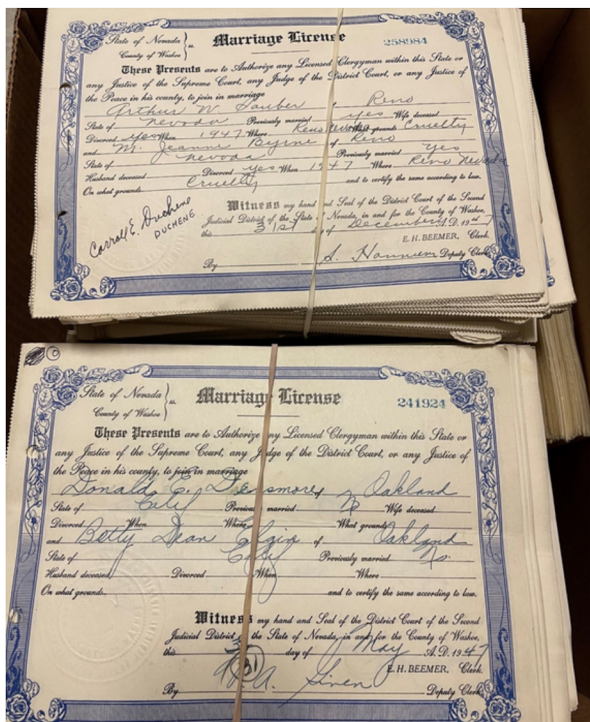 State of Nevada } ss. Marriage License 258984
County of Washoe
These Presents are to Authorize any Licensed Clergyman within this State or
any Justice of the Supreme Court, any Judge of the District Court, or any Justice of
the Peace in his county, to join in marriage
Arthur W. Sauber of Reno
State of Nevada Previously married yes Wife deceased
Divorced yes When 1947 Where Reno Nevada What grounds Cruelty
and M. Jeanne Byrne of Reno
State of Nevada Previously married yes
Husband deceased Divorced yes When 1947 Where Reno Nevada
On what grounds Cruelty and to certify the same according to law.
Witness my hand and Seal of the District Court of the Second
Judicial District of the State of Nevada, in and for the County of Washoe,
this 31st day of December A.D. 1947
Carroll E. Duchene
DUCHENE
E. H. BEEMER, Clerk.
By S. Deputy Clerk
State of Nevada } ss. Marriage License 241924
County of Washoe
These Presents are to Authorize any Licensed Clergyman within this State or
any Justice of the Supreme Court, any Judge of the District Court, or any Justice of
the Peace in his county, to join in marriage
Donald E. of Oakland
State of Calif Previously married No Wife deceased
Divorced When Where What grounds
and Betty Jean of Oakland
State of Calif Previously married No
Husband deceased Divorced When Where
On what grounds and to certify the same according to law.
Witness my hand and Seal of the District Court of the Second
Judicial District of the State of Nevada, in and for the County of Washoe,
this day of May A.D. 1947
31
E. H. BEEMER, Clerk.
By A. Deputy Clerk.